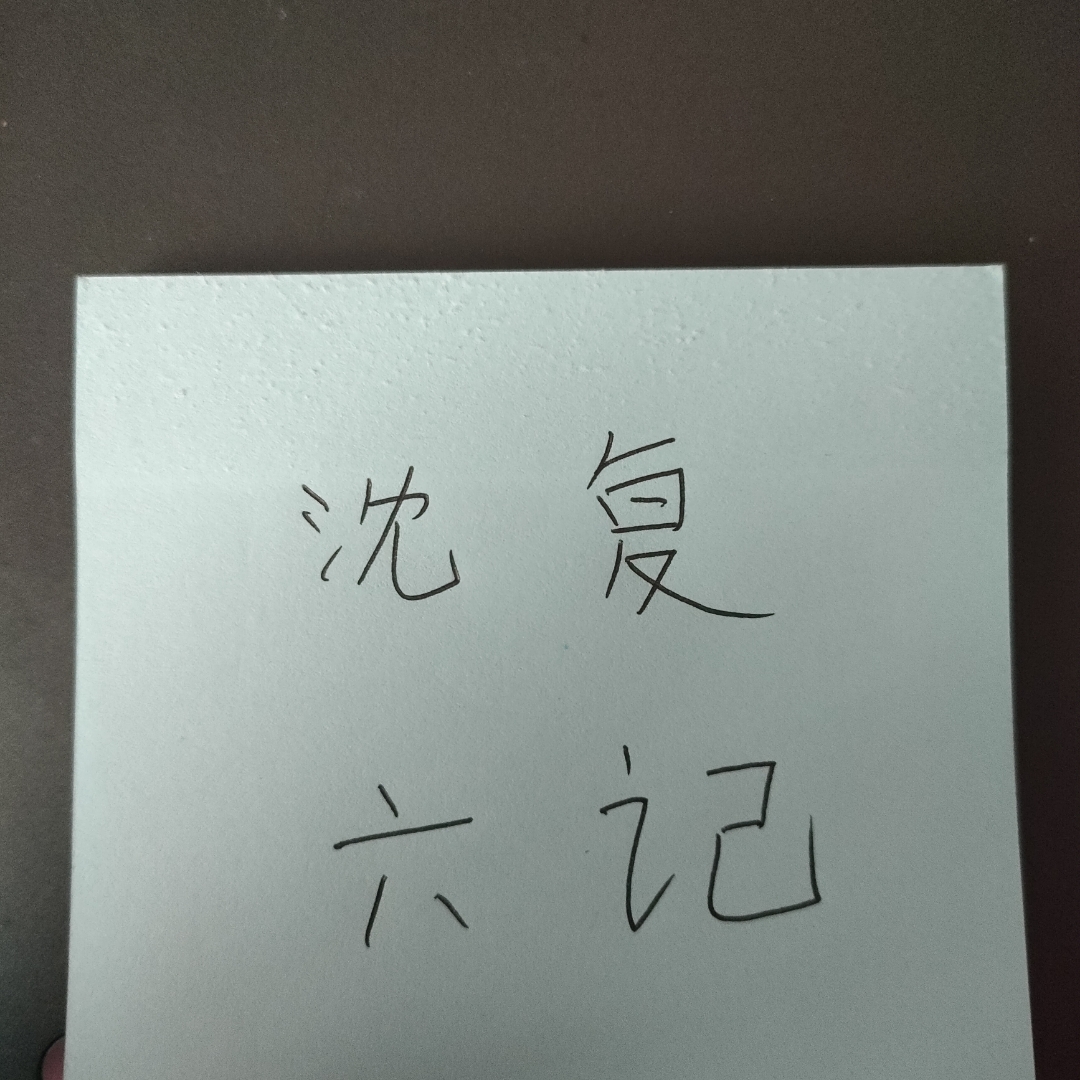 沈复
六记